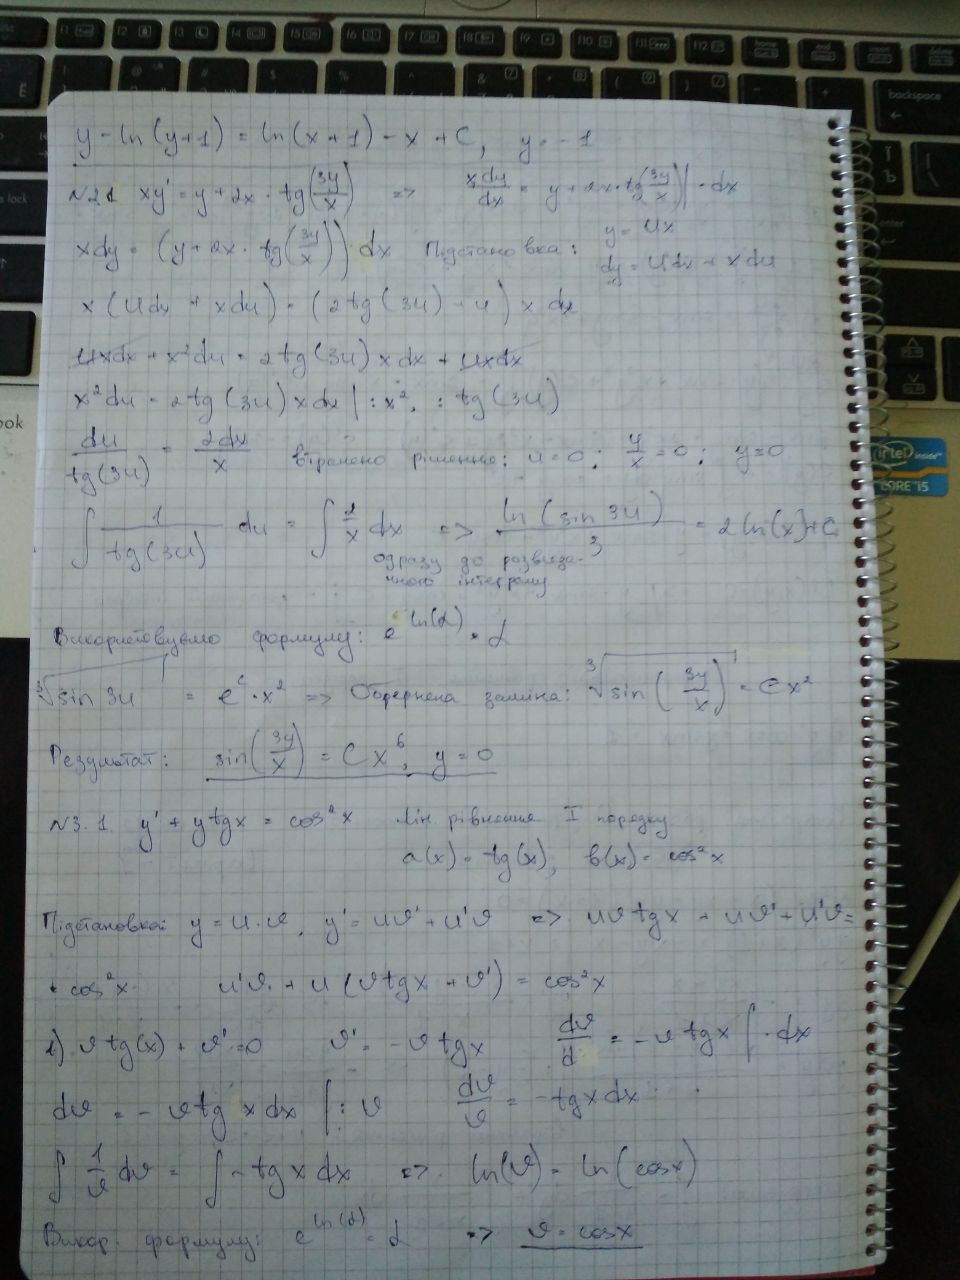 y - ln(y+1) = ln(x+1) - x + C, y = -1
№2.1 xy' = y + 2x · tg(3y/x) => xdy/dx = y + 2x · tg(3y/x) | · dx
xdy = (y + 2x · tg(3y/x)) dx Підстановка: y = ux
dy = udx + xdu
x(udx + xdu) = (2tg(3u) + u) x dx
uxdx + x²du = 2tg(3u) xdx + uxdx
x²du = 2tg(3u) xdx | : x², : tg(3u)
du/tg(3u) = 2dx/x втрачено рішення: u = 0; y/x = 0; y = 0
∫ 1/tg(3u) du = ∫ 2/x dx => ln(sin 3u)/3 = 2ln(x) + C
одразу до розвʼяза-
ного інтегралу
Використовуємо формулу: e^ln(α) = α
³√sin 3u = e^c · x² => Обернена заміна: ³√sin(3y/x) = Cx²
Результат: sin(3y/x) = Cx⁶, y = 0
№3.1 y' + ytgx = cos²x Лін. рівнення I порядку
a(x) = tg(x), b(x) = cos²x
Підстановкой y = u·v, y' = uv' + u'v => uvtgx + uv' + u'v =
= cos²x u'v + u(vtgx + v') = cos²x
1) vtg(x) + v' = 0 v' = -vtgx dv/d = -vtgx | · dx
dv = -vtgxdx | : v dv/v = -tgxdx
∫ 1/v dv = ∫ -tgxdx => ln(v) = ln(cosx)
Викор. формулу: e^ln(α) = α => v = cosx
F1 F2 F3 F4 F5 F6 F7 F8 F9 F10 F11 F12 home end delete
backspace
intel inside™
CORE™i5